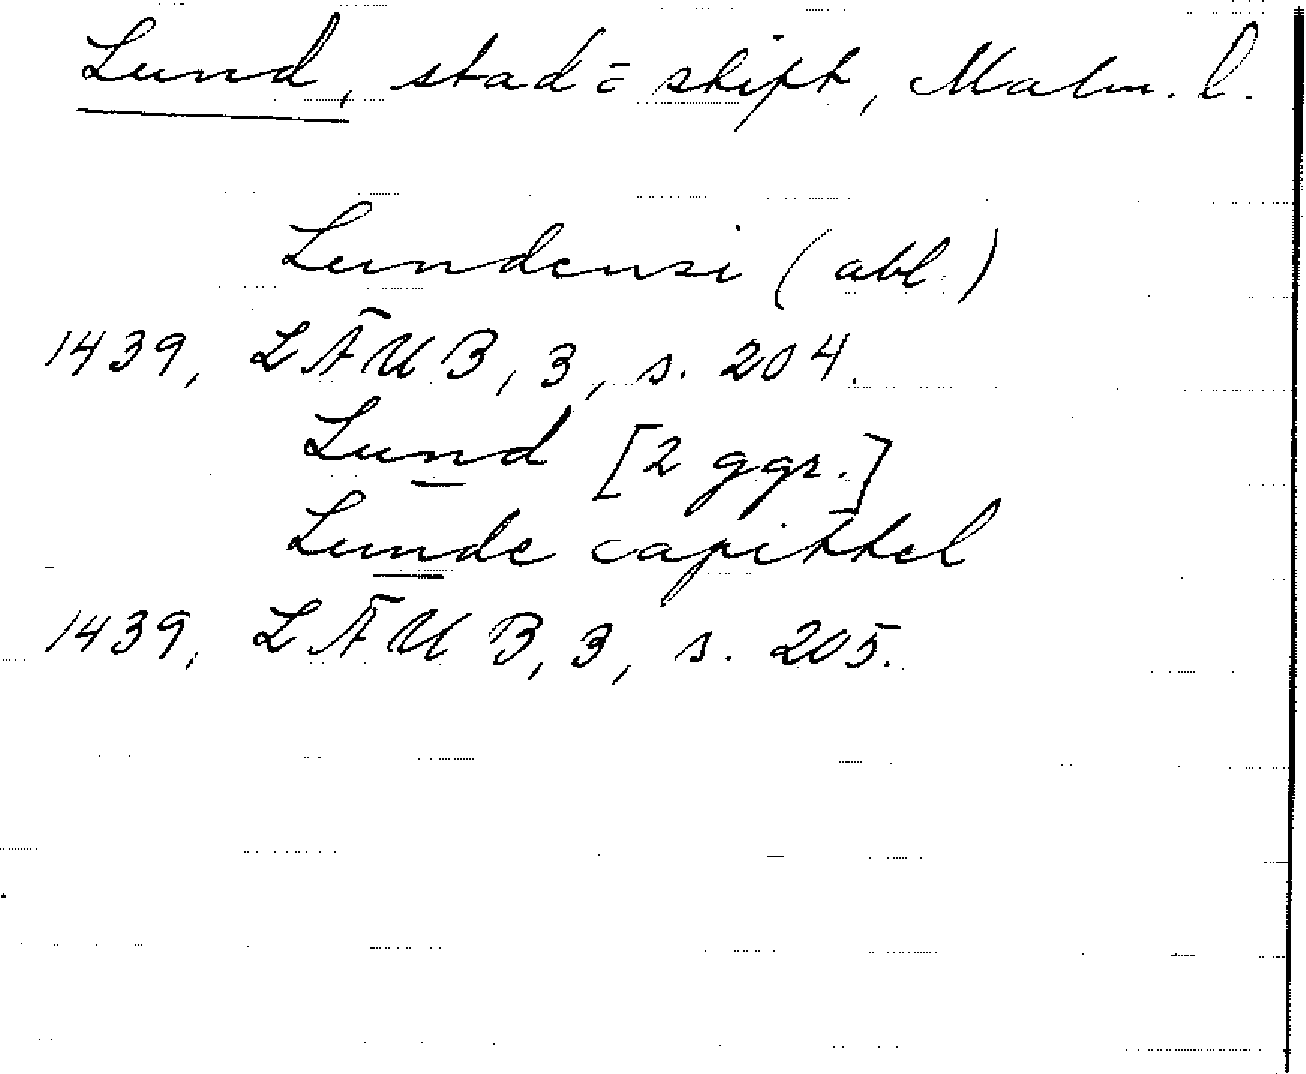 Lund, stad = skift, Malm. l.
Lundensi (abl.)
1439, LÄUB, 3, s. 204.
Lund [2 ggr.]
Lunde capittel
1439, LÄUB, 3, s. 205.